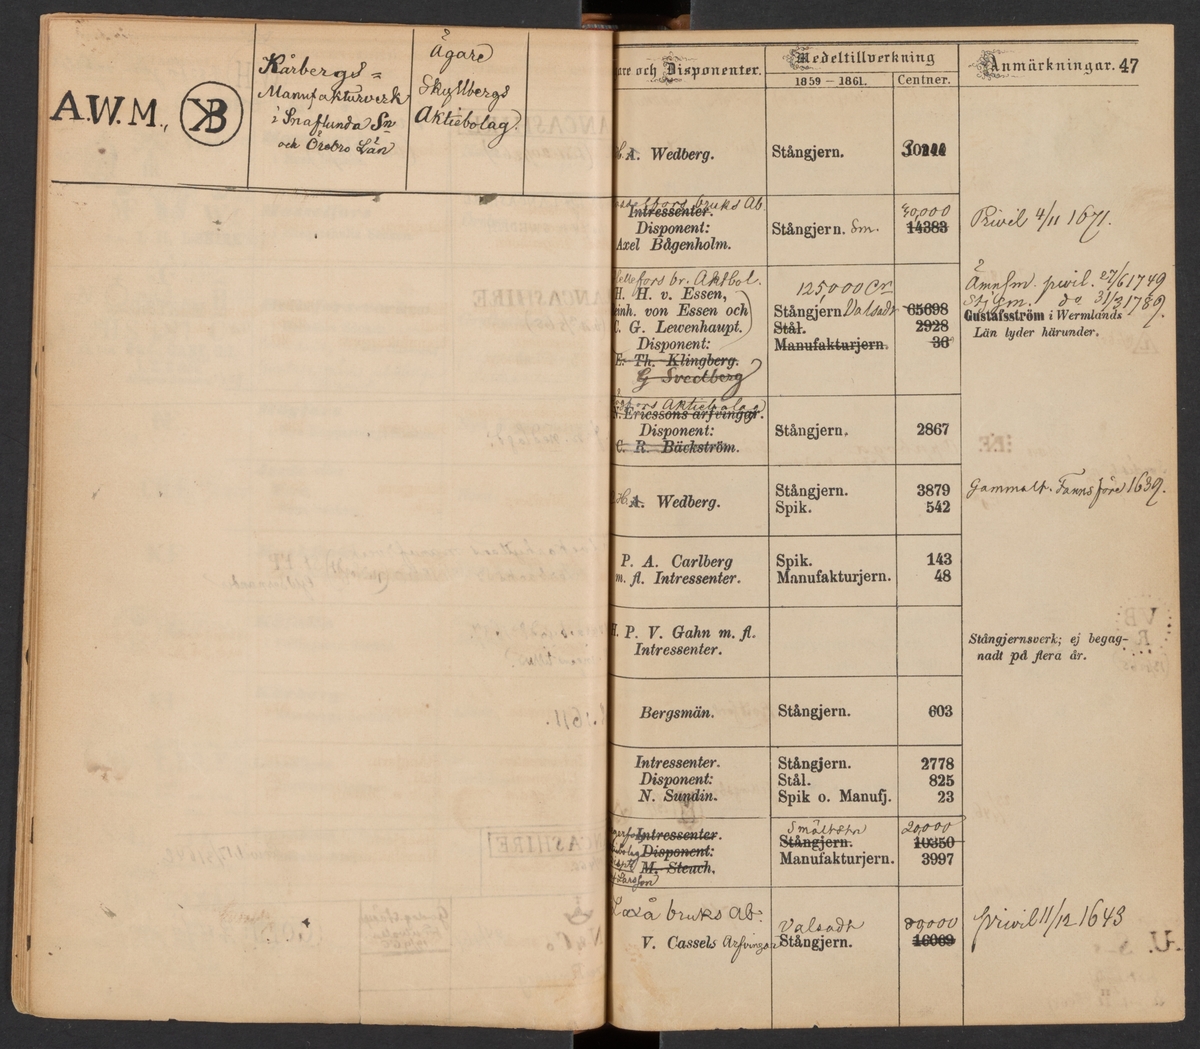 A.W.M.,
KB
Kårbergs=
Manufakturverk
i Snaflunda Sn
och Örebro Län
Ägare
Skyllbergs
Aktiebolag.
are och Disponenter.
Medeltillverkning
1859 – 1861.
Centner.
Anmärkningar. 47
A. Wedberg.
Stångjern.
bruks Ab.
Intressenter.
Disponent:
Axel Bågenholm.
Stångjern. Sm.
30,000
14383
Privil 4/11 1671.
fors br. Aktbol.
H. H. v. Essen,
inh. von Essen och
C. G. Lewenhaupt.
Disponent:
E. Th. Klingberg.
G Svedberg
125,000 Ctr
Stångjern Valsadt 65698
Stål. 2928
Manufakturjern. 36
Ämnsm. privil. 27/6 1749
Stjsm. do 31/3 1789.
Gustafsström i Wermlands
Län lyder härunder.
fors Aktiebolag
N. Ericssons arfvingar.
Disponent:
C. R. Bäckström.
Stångjern. 2867
A. Wedberg.
Stångjern. 3879
Spik. 542
Gammalt. Fanns före 1639.
P. A. Carlberg
m. fl. Intressenter.
Spik. 143
Manufakturjern. 48
H. P. V. Gahn m. fl.
Intressenter.
Stångjernsverk; ej begag-
nadt på flera år.
Bergsmän.
Stångjern. 603
Intressenter.
Disponent:
N. Sundin.
Stångjern. 2778
Stål. 825
Spik o. Manufj. 23
Intressenter.
Disponent:
M. Steuch.
Larsson
Smältstn 20,000
Stångjern. 10350
Manufakturjern. 3997
Laxå bruks Ab.
V. Cassels Arfvingar
Valsadt
Stångjern.
80,000
16069
privil 11/12 1643